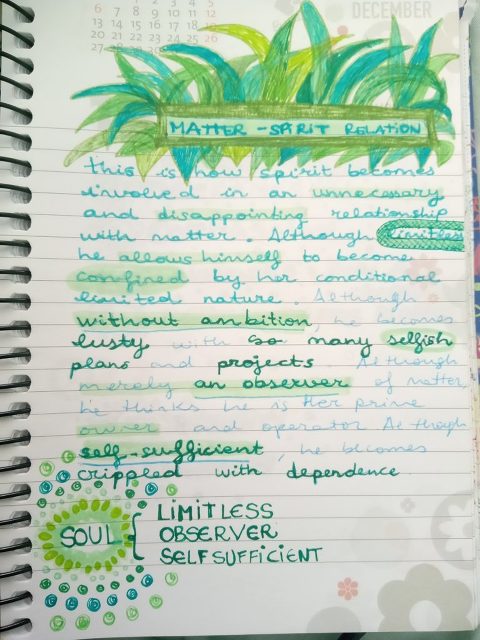 DECEMBER
6
13 14
20 21
27 28 29 30 31
MATTER - SPIRIT RELATION
This is how spirit becomes
involved in an unnecessary
and disappointing relationship
with matter. Although limitless
he allows himself to become
confined by her conditional
limited nature. Although
without ambition, he becomes
lusty with so many selfish
plans and projects. Although
merely an observer of matter,
he thinks he is her prime
owner and operator. Although
self-sufficient, he becomes
crippled with dependence
SOUL { LIMITLESS
OBSERVER
SELFSUFFICIENT